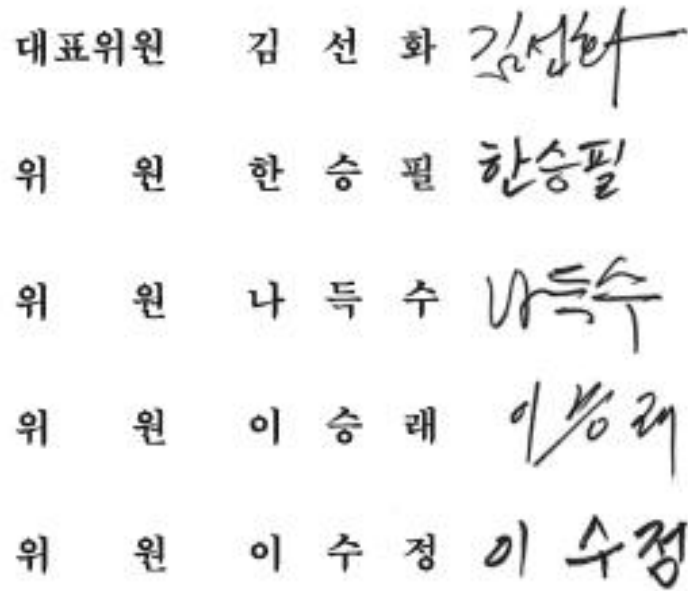 대표위원 김 선 화 김선화
위 원 한 승 필 한승필
위 원 나 득 수 나득수
위 원 이 승 래 이승래
위 원 이 수 정 이 수정